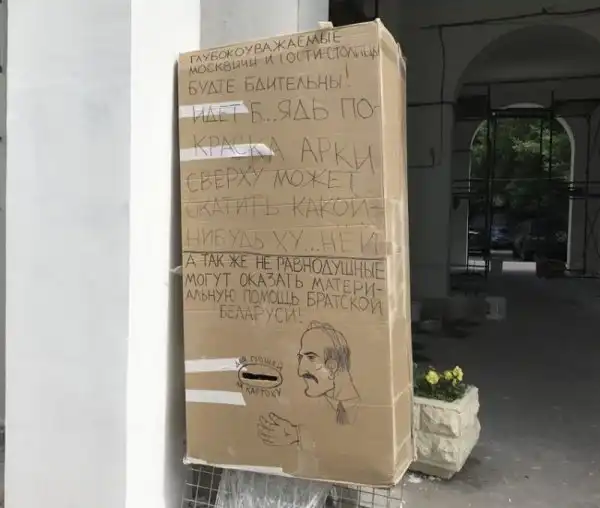 ГЛУБОКОУВАЖАЕМЫЕ
МОСКВИЧИ И ГОСТИ СТОЛИЦЫ
БУДТЕ БДИТЕЛЬНЫ!
ИДЕТ Б..ЯДЬ ПО-
КРАСКА АРКИ
СВЕРХУ МОЖЕТ
ОКАТИТЬ КАКОЙ-
НИБУДЬ ХУ...НЕЙ
А ТАК ЖЕ НЕ РАВНОДУШНЫЕ
МОГУТ ОКАЗАТЬ МАТЕРИ-
АЛЬНУЮ ПОМОЩЬ БРАТСКОЙ
БЕЛАРУСИ!
НА КАРТОХУ